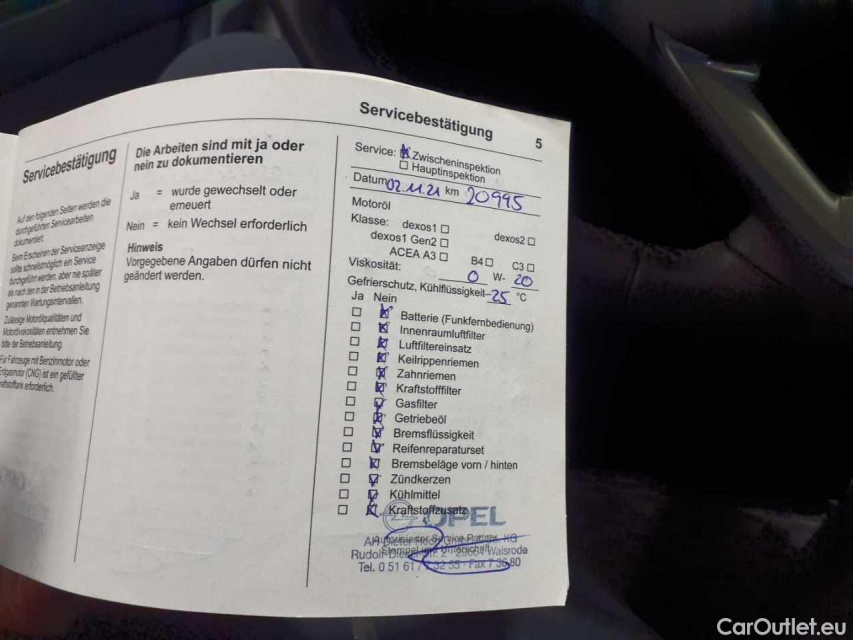 Servicebestätigung
Auf den folgenden Seiten werden die
durchgeführten Servicearbeiten
dokumentiert.
Beim Erscheinen der Serviceanzeige
sollte schnellstmöglich ein Service
durchgeführt werden, aber nie später
als nach den in der Betriebsanleitung
genannten Wartungsintervallen.
Zulässige Motorölqualitäten und
Motorölviskositäten entnehmen Sie
bitte der Betriebsanleitung.
Für Fahrzeuge mit Benzinmotor oder
Erdgasmotor (CNG) ist ein gefüllter
Kraftstofftank erforderlich.
Die Arbeiten sind mit ja oder
nein zu dokumentieren
Ja = wurde gewechselt oder
erneuert
Nein = kein Wechsel erforderlich
Hinweis
Vorgegebene Angaben dürfen nicht
geändert werden.
Servicebestätigung 5
Service: Zwischeninspektion
Hauptinspektion
Datum 02.11.21 km 20995
Motoröl
Klasse: dexos1 dexos2
dexos1 Gen2
ACEA A3 B4 C3
Viskosität: 0 W- 20
Gefrierschutz, Kühlflüssigkeit -25 °C
Ja Nein
Batterie (Funkfernbedienung)
Innenraumluftfilter
Luftfiltereinsatz
Keilrippenriemen
Zahnriemen
Kraftstofffilter
Gasfilter
Getriebeöl
Bremsflüssigkeit
Reifenreparaturset
Bremsbeläge vorn / hinten
Zündkerzen
Kühlmittel
Kraftstoffzusatz
OPEL
Autorisierter Service Partner
Stempel und Unterschrift
Walsrode
Tel. 0 51 61 / 7 32 55 - Fax 7 36 80
CarOutlet.eu